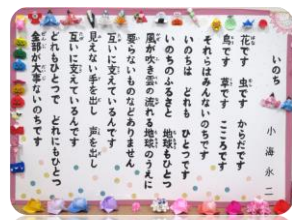 いのち
小海永二
花です 虫です からだです
鳥です 草です こころです
それらはみんないのちです
いのちは どれも ひとつです
いのちのふるさと 地球もひとつです
風が吹き雲の流れる地球のうえに
要らないものなどありません
互いに支えているんです
見えない手を出し 声を出し
互いに支えているんです
どれもひとつで どれにもひとつ
全部が大事ないのちです